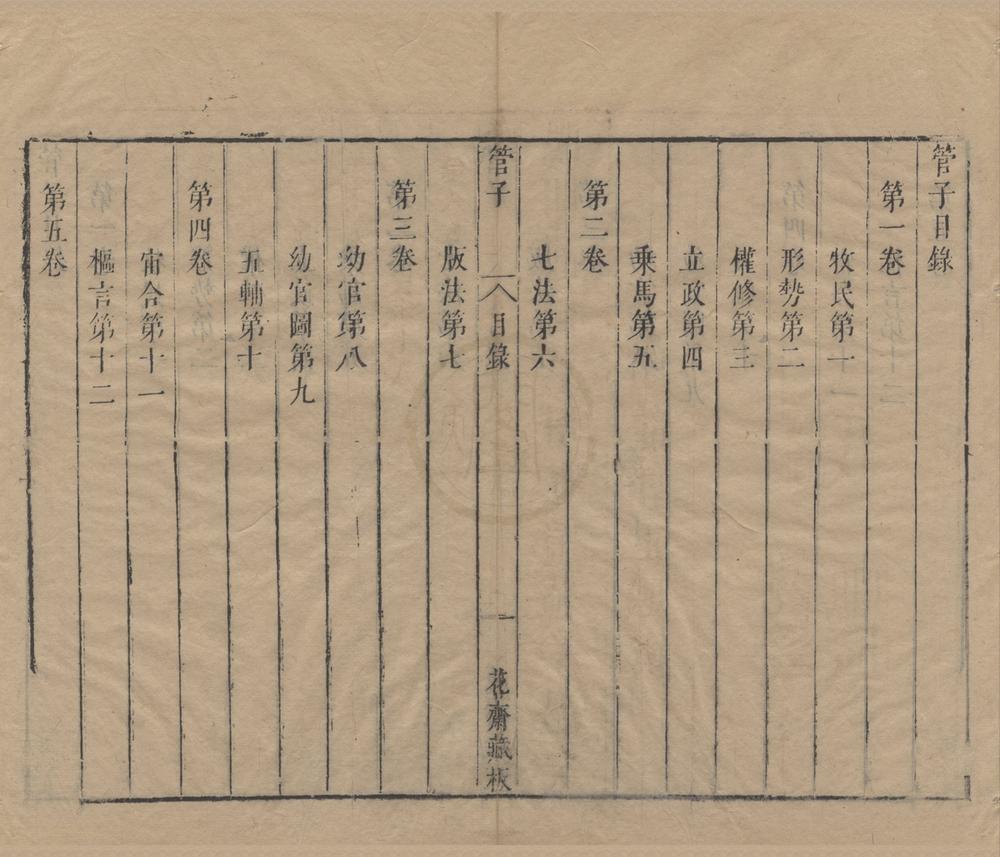 管子目錄
第一卷
牧民第一
形勢第二
權修第三
立政第四
乗馬第五
第二卷
七法第六
管子
目錄
一
花齋藏板
版法第七
第三卷
幼官第八
幼官圖第九
五輔第十
第四卷
宙合第十一
樞言第十二
第五卷